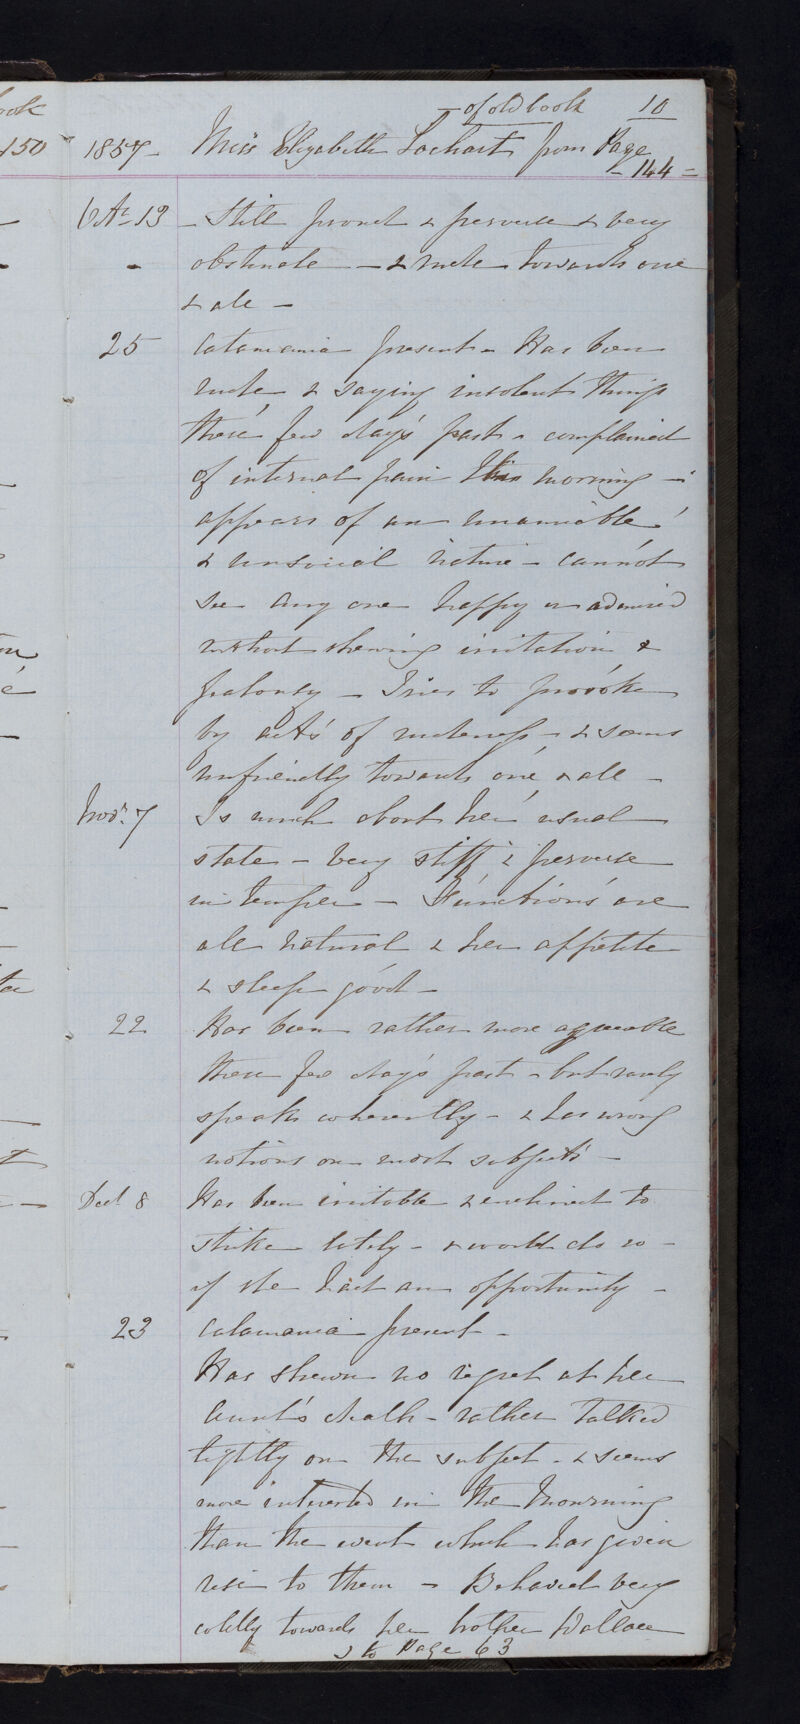 ook
150
of old book 10
1857 - Miss Elizabeth Lockhart from Page
- 144 =
Oct 13 - Still proud & perverse & very
obstinate - & rude towards one
& all -
25 Catamania present - Has been
rude & saying insolent things
these few day's past - complained
of internal pain this morning -
appears of an unamiable
& unsocial nature - cannot
see any one happy or admired
without shewing irritation &
jealousy - Tries to provoke
by acts of rudeness - & seems
unfriendly towards one & all -
Novr 7 Is much about her usual
state - very stiff & perverse
in temper - Functions are
all natural & her appetite
& sleep good -
22 Has been rather more agreeable
these few day's past - but rarely
speaks coherently - & has wrong
notions on most subjects -
Dec 8 Has been irritable & inclined to
strike lately - & would do so -
if she had an opportunity -
23 Catamania present -
Has shewn no regret at her
Aunt's death - rather talked
lightly on the subject - & seems
more interested in the Mourning
than the event which has given
rise to them - Behaved very
coldly towards her brother Wallace
to Page 63